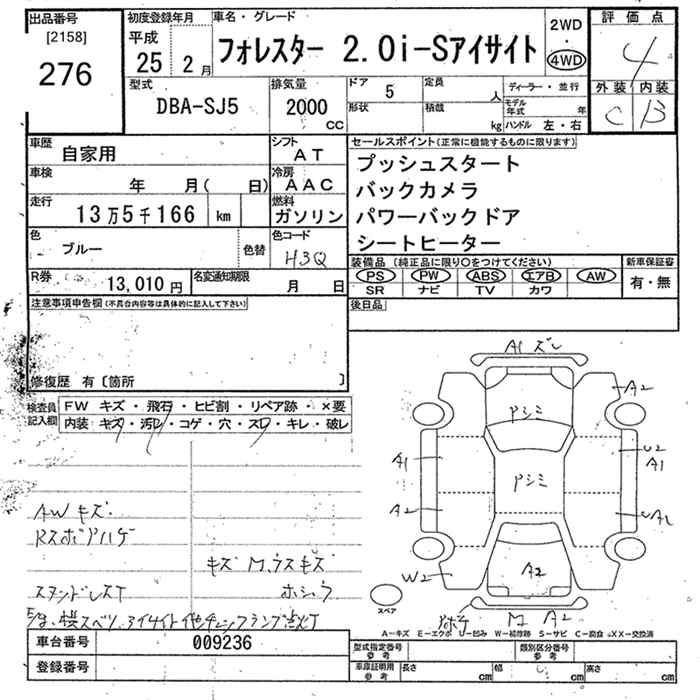 出品番号
[2158]
276
初度登録年月
平成
25 2月
車名・グレード
フォレスター 2.0i-Sアイサイト
2WD
・
4WD
評価点
4
外装 内装
C B
型式
DBA-SJ5
排気量
2000
CC
ドア
5
形状
定員
人
積載
kg
ディーラー・並行
モデル年式 年
ハンドル 左・右
車歴
自家用
シフト
AT
車検
年 月( 日)
冷房
AAC
走行
13万5千166 km
燃料
ガソリン
色
ブルー
色替
色コード
H3Q
R券
13,010円
名変通知期限
月 日
セールスポイント(正常に機能するものに限ります)
プッシュスタート
バックカメラ
パワーバックドア
シートヒーター
装備品(純正品に限り○をつけてください)
PS PW ABS エアB AW
SR ナビ TV カワ
新車保証書
有・無
後日品
注意事項申告欄(不具合内容等は具体的に記入して下さい)
修復歴 有〔箇所 〕
検査員記入欄
FW キズ・飛石・ヒビ割・リペア跡・×要
内装 キズ・汚レ・コゲ・穴・スレ・キレ・破レ
AWキズ
キズ M,ウスキズ
A1 ズレ
A2
Pシミ
U2
A1
A1
Pシミ
A2
W2
A2
A2
スペア
A-キズ E-エクボ U-凹み W-補修跡 S-サビ C-腐食 XX-交換済
車台番号
009236
登録番号
型式指定番号
参考
類別区分番号
参考
車庫証明用
参考
長さ cm
幅 cm
高さ cm